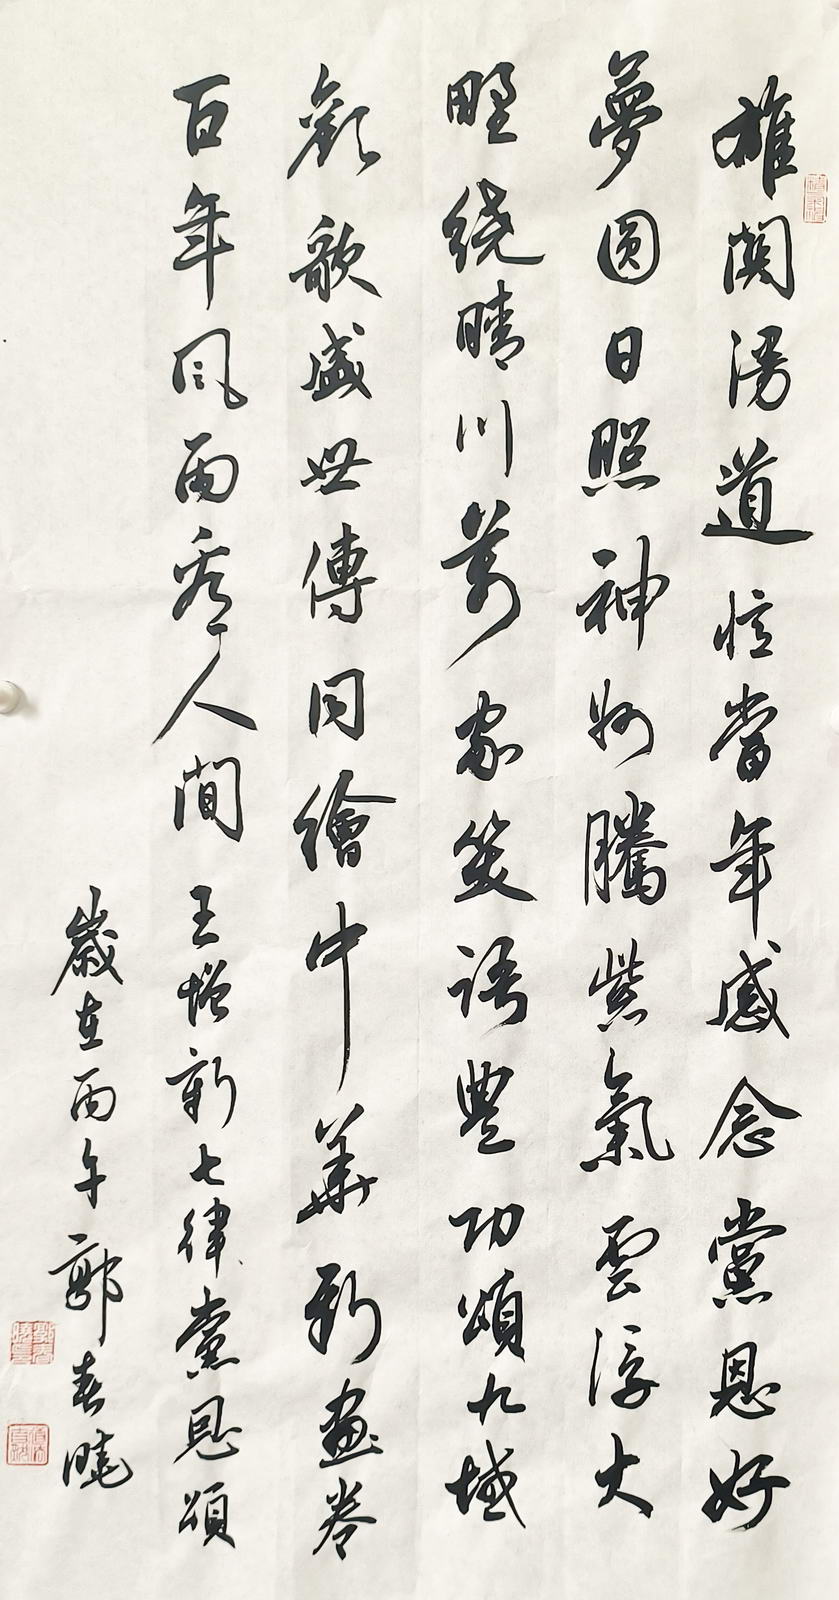 雄關漫道憶當年感念黨恩好
夢圓日照神州騰紫氣雲浮大
野繞晴川萬家笑語豐功頌九域
歡歌盛世傳同繪中華新畫卷
百年風雨秀人間 王增新七律黨恩頌
歲在丙午郭春曉